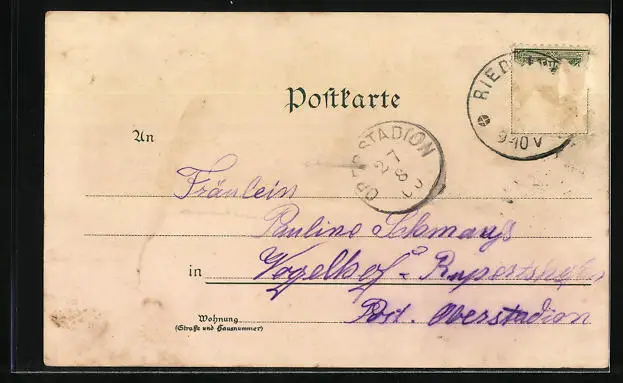 Postkarte
RIED
9-10 V
OBERSTADION
27
8
00
An
Fräulein
Pauline Schmauß
in Vogelhof - Rupertshofen
Post. Oberstadion
Wohnung
(Straße und Hausnummer)